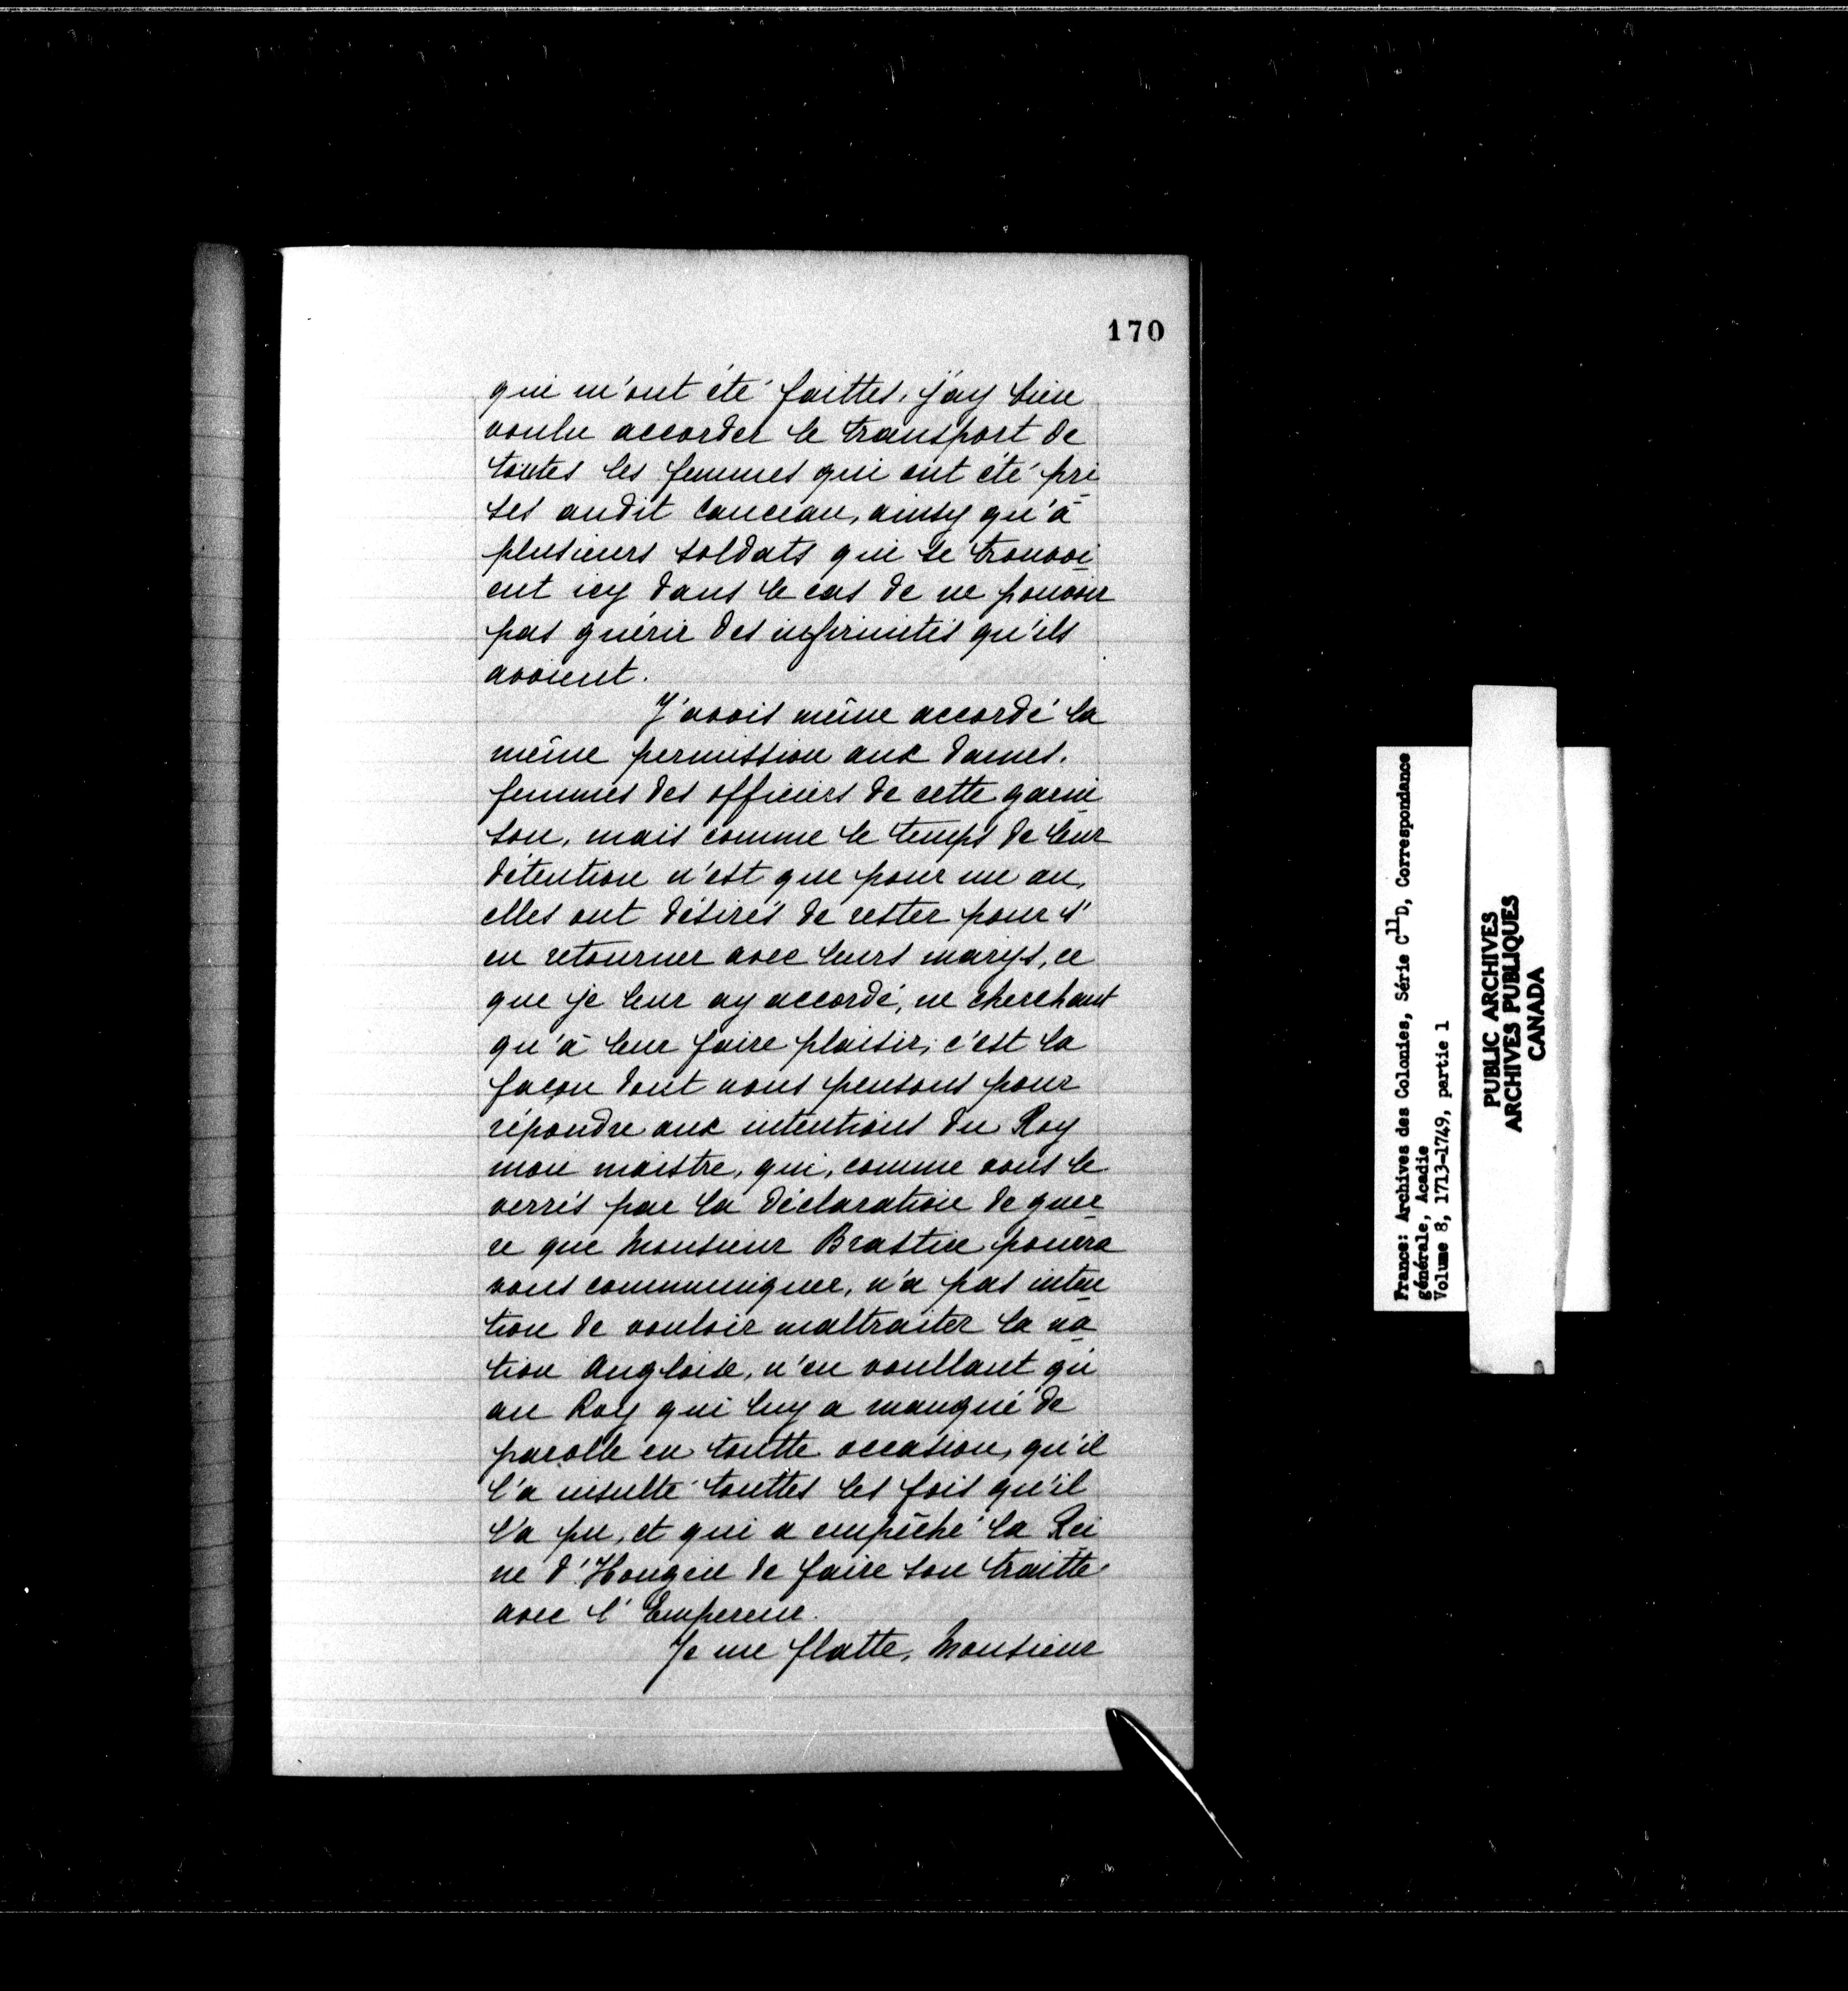 170
qui m'ont été faittes, j'ay bien
voulu accorder le transport de
toutes les femmes qui ont été pri
ses audit Canceau, ainsy qu'à
plusieurs soldats qui se trouvoi
ent icy dans le cas de ne pouvoir
pas guérir des infirmités qu'ils
avoient.
J'avois même accordé la
même permission aux dames,
femmes des officiers de cette garni
son, mais comme le temps de leur
détention n'est que pour un an,
elles ont désirés de rester pour s'
en retourner avec leurs marys, ce
que je leur ay accordé, ne cherchant
qu'à leur faire plaisir; c'est la
façon dont nous pensons pour
répondre aux intentions du Roy
mon maistre, qui, comme vous le
verrés par la déclaration de guer
re que Monsieur Brastire pourra
vous communiquer, n'a pas inten
tion de vouloir maltraiter la na
tion Angloise, n'en voullant qu'
au Roy qui luy a manqué de
parolle en toutte occasion, qu'il
l'a insulté touttes les fois qu'il
l'a pu, et qui a empêché la Rei
ne d'Hongrie de faire son traitté
avec l'Empereur.
Je me flatte, Monsieur
France: Archives des Colonies, Série C11D, Correspondance
générale, Acadie
Volume 8, 1713-1749, partie 1
PUBLIC ARCHIVES
ARCHIVES PUBLIQUES
CANADA